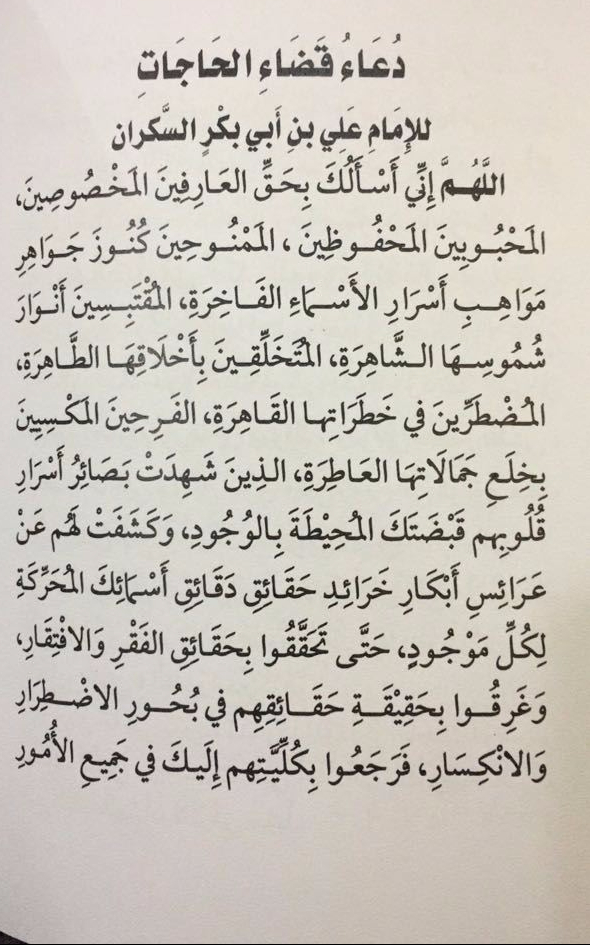 دُعَاءُ قَضَاءِ الحَاجَاتِ
للإِمَامِ عَلِي بنِ أَبي بكْرٍ السَّكران
اللَّهُمَّ إِنِّي أَسْأَلُكَ بِحَقِّ العَارِفِينَ المَخْصُوصِينَ،
المَحْبُوبِينَ المَحْفُوظِينَ، المَمْنُوحِينَ كُنُوزَ جَوَاهِرِ
مَوَاهِبِ أَسْرَارِ الأَسْمَاءِ الفَاخِرَةِ، المُقْتَبِسِينَ أَنْوَارَ
شُمُوسِهَا الشَّاهِرَةِ، المُتَخَلِّقِينَ بِأَخْلَاقِهَا الطَّاهِرَةِ،
المُضْطَرِّينَ في خَطَرَاتِها القَاهِرَةِ، الفَرِحِينَ المَكْسِيينَ
بِخِلَعِ جَمَالَاتِهَا العَاطِرَةِ، الذِينَ شَهِدَتْ بَصَائِرُ أَسْرَارِ
قُلُوبِهم قَبْضَتَكَ المُحِيْطَةَ بِالوُجُودِ، وَكَشَفَتْ لَهُم عَنْ
عَرَائِسِ أَبْكَارِ خَرَائِدِ حَقَائِقِ دَقَائِقِ أَسْمَائِكَ المُحَرِّكَةِ
لِكُلِّ مَوْجُودٍ، حَتَّى تَحَقَّقُوا بِحَقَائِقِ الفَقْرِ وَالافْتِقَارِ،
وَغَرِقُوا بِحَقِيْقَةِ حَقَائِقِهِم في بُحُورِ الاضْطِرَارِ
وَالانْكِسَارِ، فَرَجَعُوا بِكُلِّيَّتِهم إِلَيكَ في جَمِيعِ الأُمُورِ